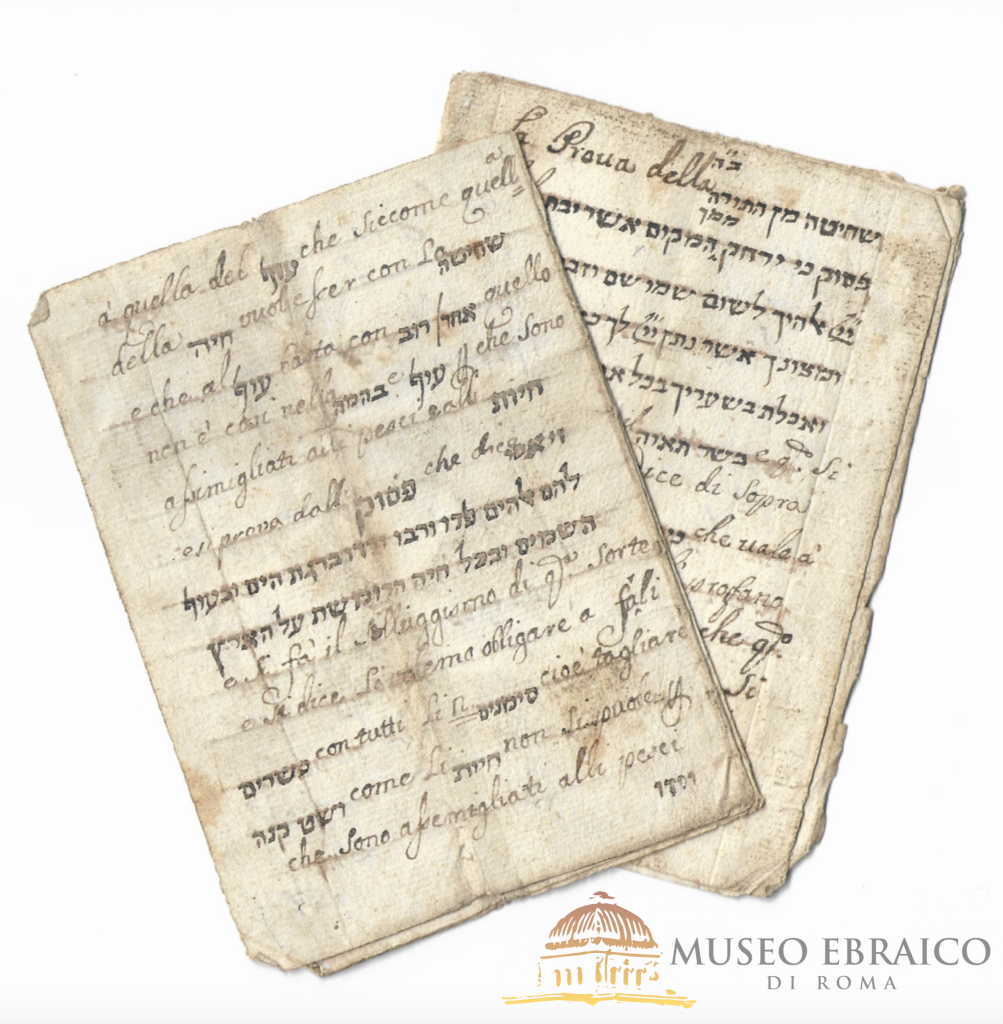 à quella del עוף che Siccome quella
della חיה vuol esser con La שחיטה
e che al עוף basta con רוב quello
non è cosi nella בהמה e עוף che Sono
assimigliati alli pesci חיות
e si prova dall פסוק che dice
להם אלהים פרו ורבו ורדו בדגת הים ובעוף
השמים ובכל חיה הרומשת על הארץ
e Si fà il di q.ta Sorte
e Si dice obligare a farli
כשרים con tutti Li סימנים cioè tagliare
ושט קנה come Li חיות non Si puole
che Sono assemigliati alli pesci
ורדו
ב״ה
La Prova della
שחיטה מן התורה
ממך
פסוק כי ירחק המקום אשר יבח
אלהיך לשום שמו שם וזבח
ומצונך אשר נתן לך
ואכלת בשעריך בכל
בשר תאוה e q.o Si
dice di Sopra
che vale à
profano
che q.o
Si
MUSEO EBRAICO
DI ROMA